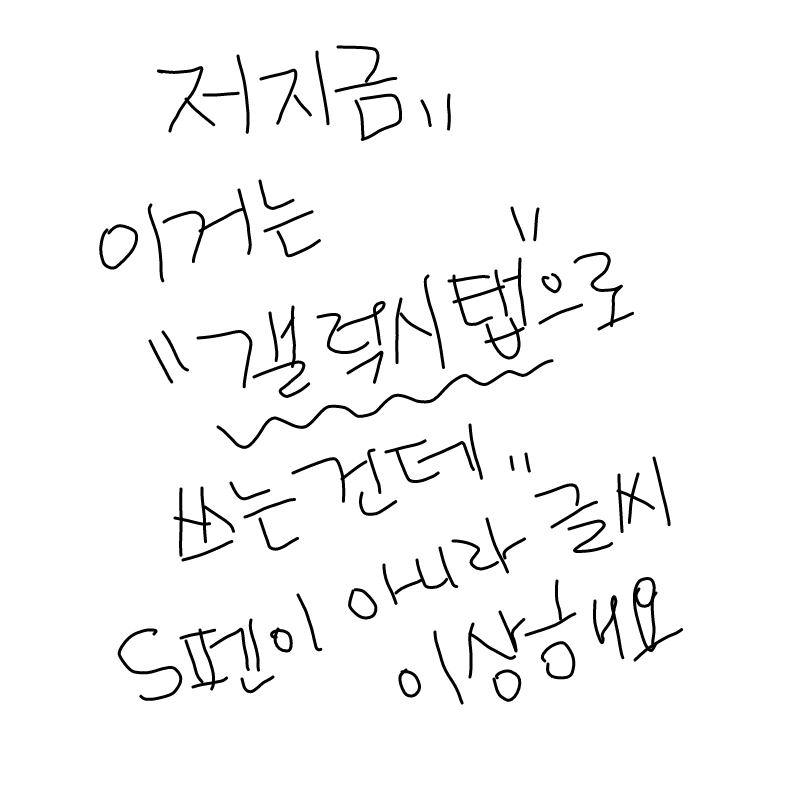 저지금"
이거는
"갤럭시탭"으로
쓰는건데"
S펜이 아니라 글씨
이상해요